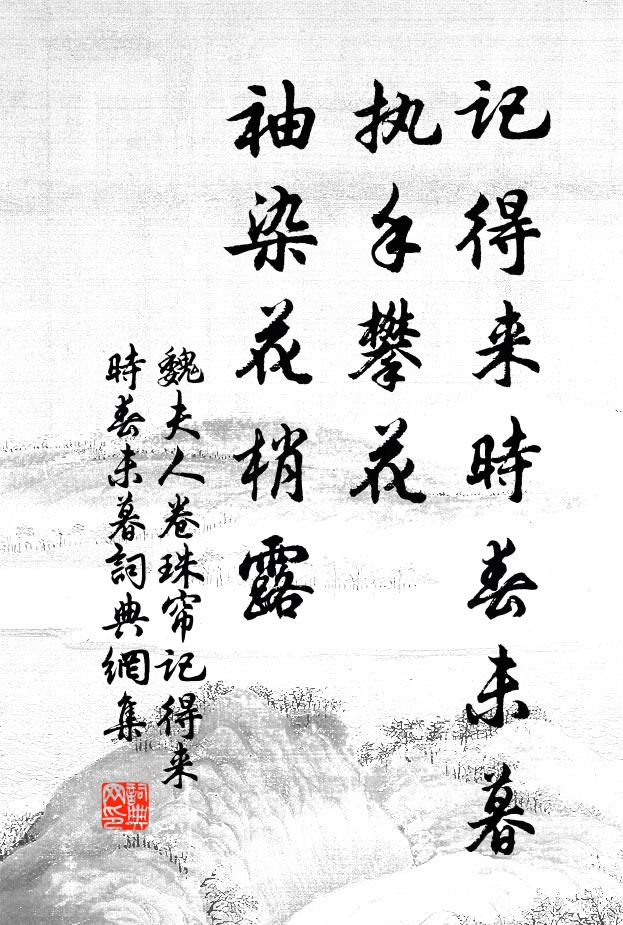 记得来時春未暮
执手攀花
袖染花梢露
魏夫人卷珠帘记得来
時春未暮詞典網集
詞典
网印